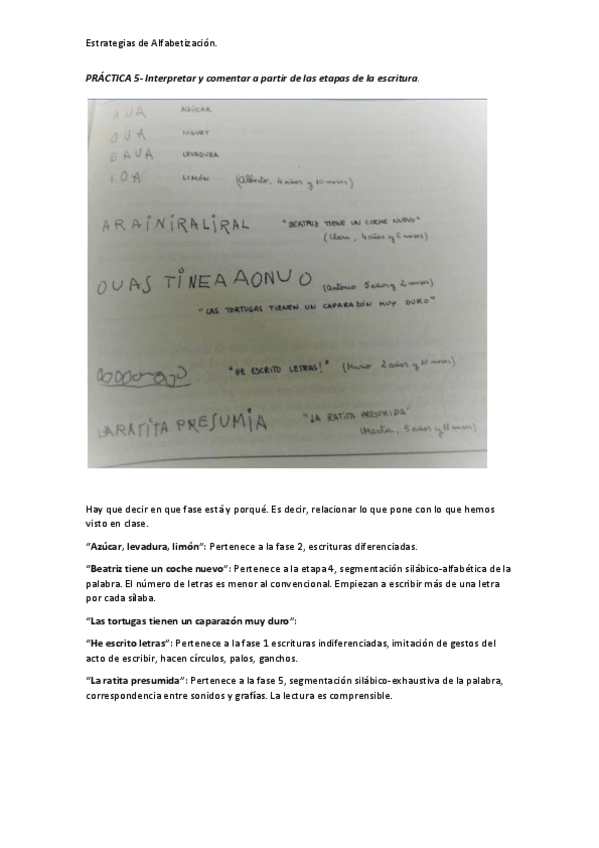 Estrategias de Alfabetización.
PRÁCTICA 5- Interpretar y comentar a partir de las etapas de la escritura.
AUA AZÚCAR
OUA IOGURT
EAUA LEVADURA
IOA LIMÓN (Alberto, 4 años y 10 meses)
ARAINIRALIRAL "BEATRIZ TIENE UN COCHE NUEVO"
(Clara, 4 años y 6 meses)
OUAS TINEAAONUO (Antonio 5 años y 2 meses)
"LAS TORTUGAS TIENEN UN CAPARAZÓN MUY DURO"
"HE ESCRITO LETRAS!" (Nuno 2 años y 10 meses)
LARATITA PRESUMIA "LA RATITA PRESUMIDA"
(Marta, 5 años y 11 meses)
Hay que decir en que fase está y porqué. Es decir, relacionar lo que pone con lo que hemos
visto en clase.
"Azúcar, levadura, limón": Pertenece a la fase 2, escrituras diferenciadas.
"Beatriz tiene un coche nuevo": Pertenece a la etapa 4, segmentación silábico-alfabética de la
palabra. El número de letras es menor al convencional. Empiezan a escribir más de una letra
por cada sílaba.
"Las tortugas tienen un caparazón muy duro":
"He escrito letras": Pertenece a la fase 1 escrituras indiferenciadas, imitación de gestos del
acto de escribir, hacen círculos, palos, ganchos.
"La ratita presumida": Pertenece a la fase 5, segmentación silábico-exhaustiva de la palabra,
correspondencia entre sonidos y grafías. La lectura es comprensible.